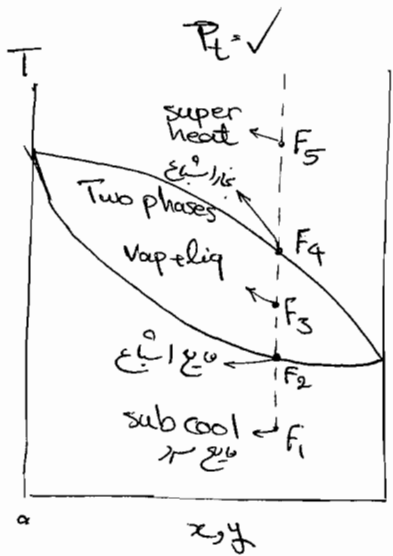 Pt = ✓
T
super
heat
F5
بخار اشباع
Two phases
F4
Vap+liq
F3
مایع اشباع
F2
sub cool
F1
مایع سرد
x,y